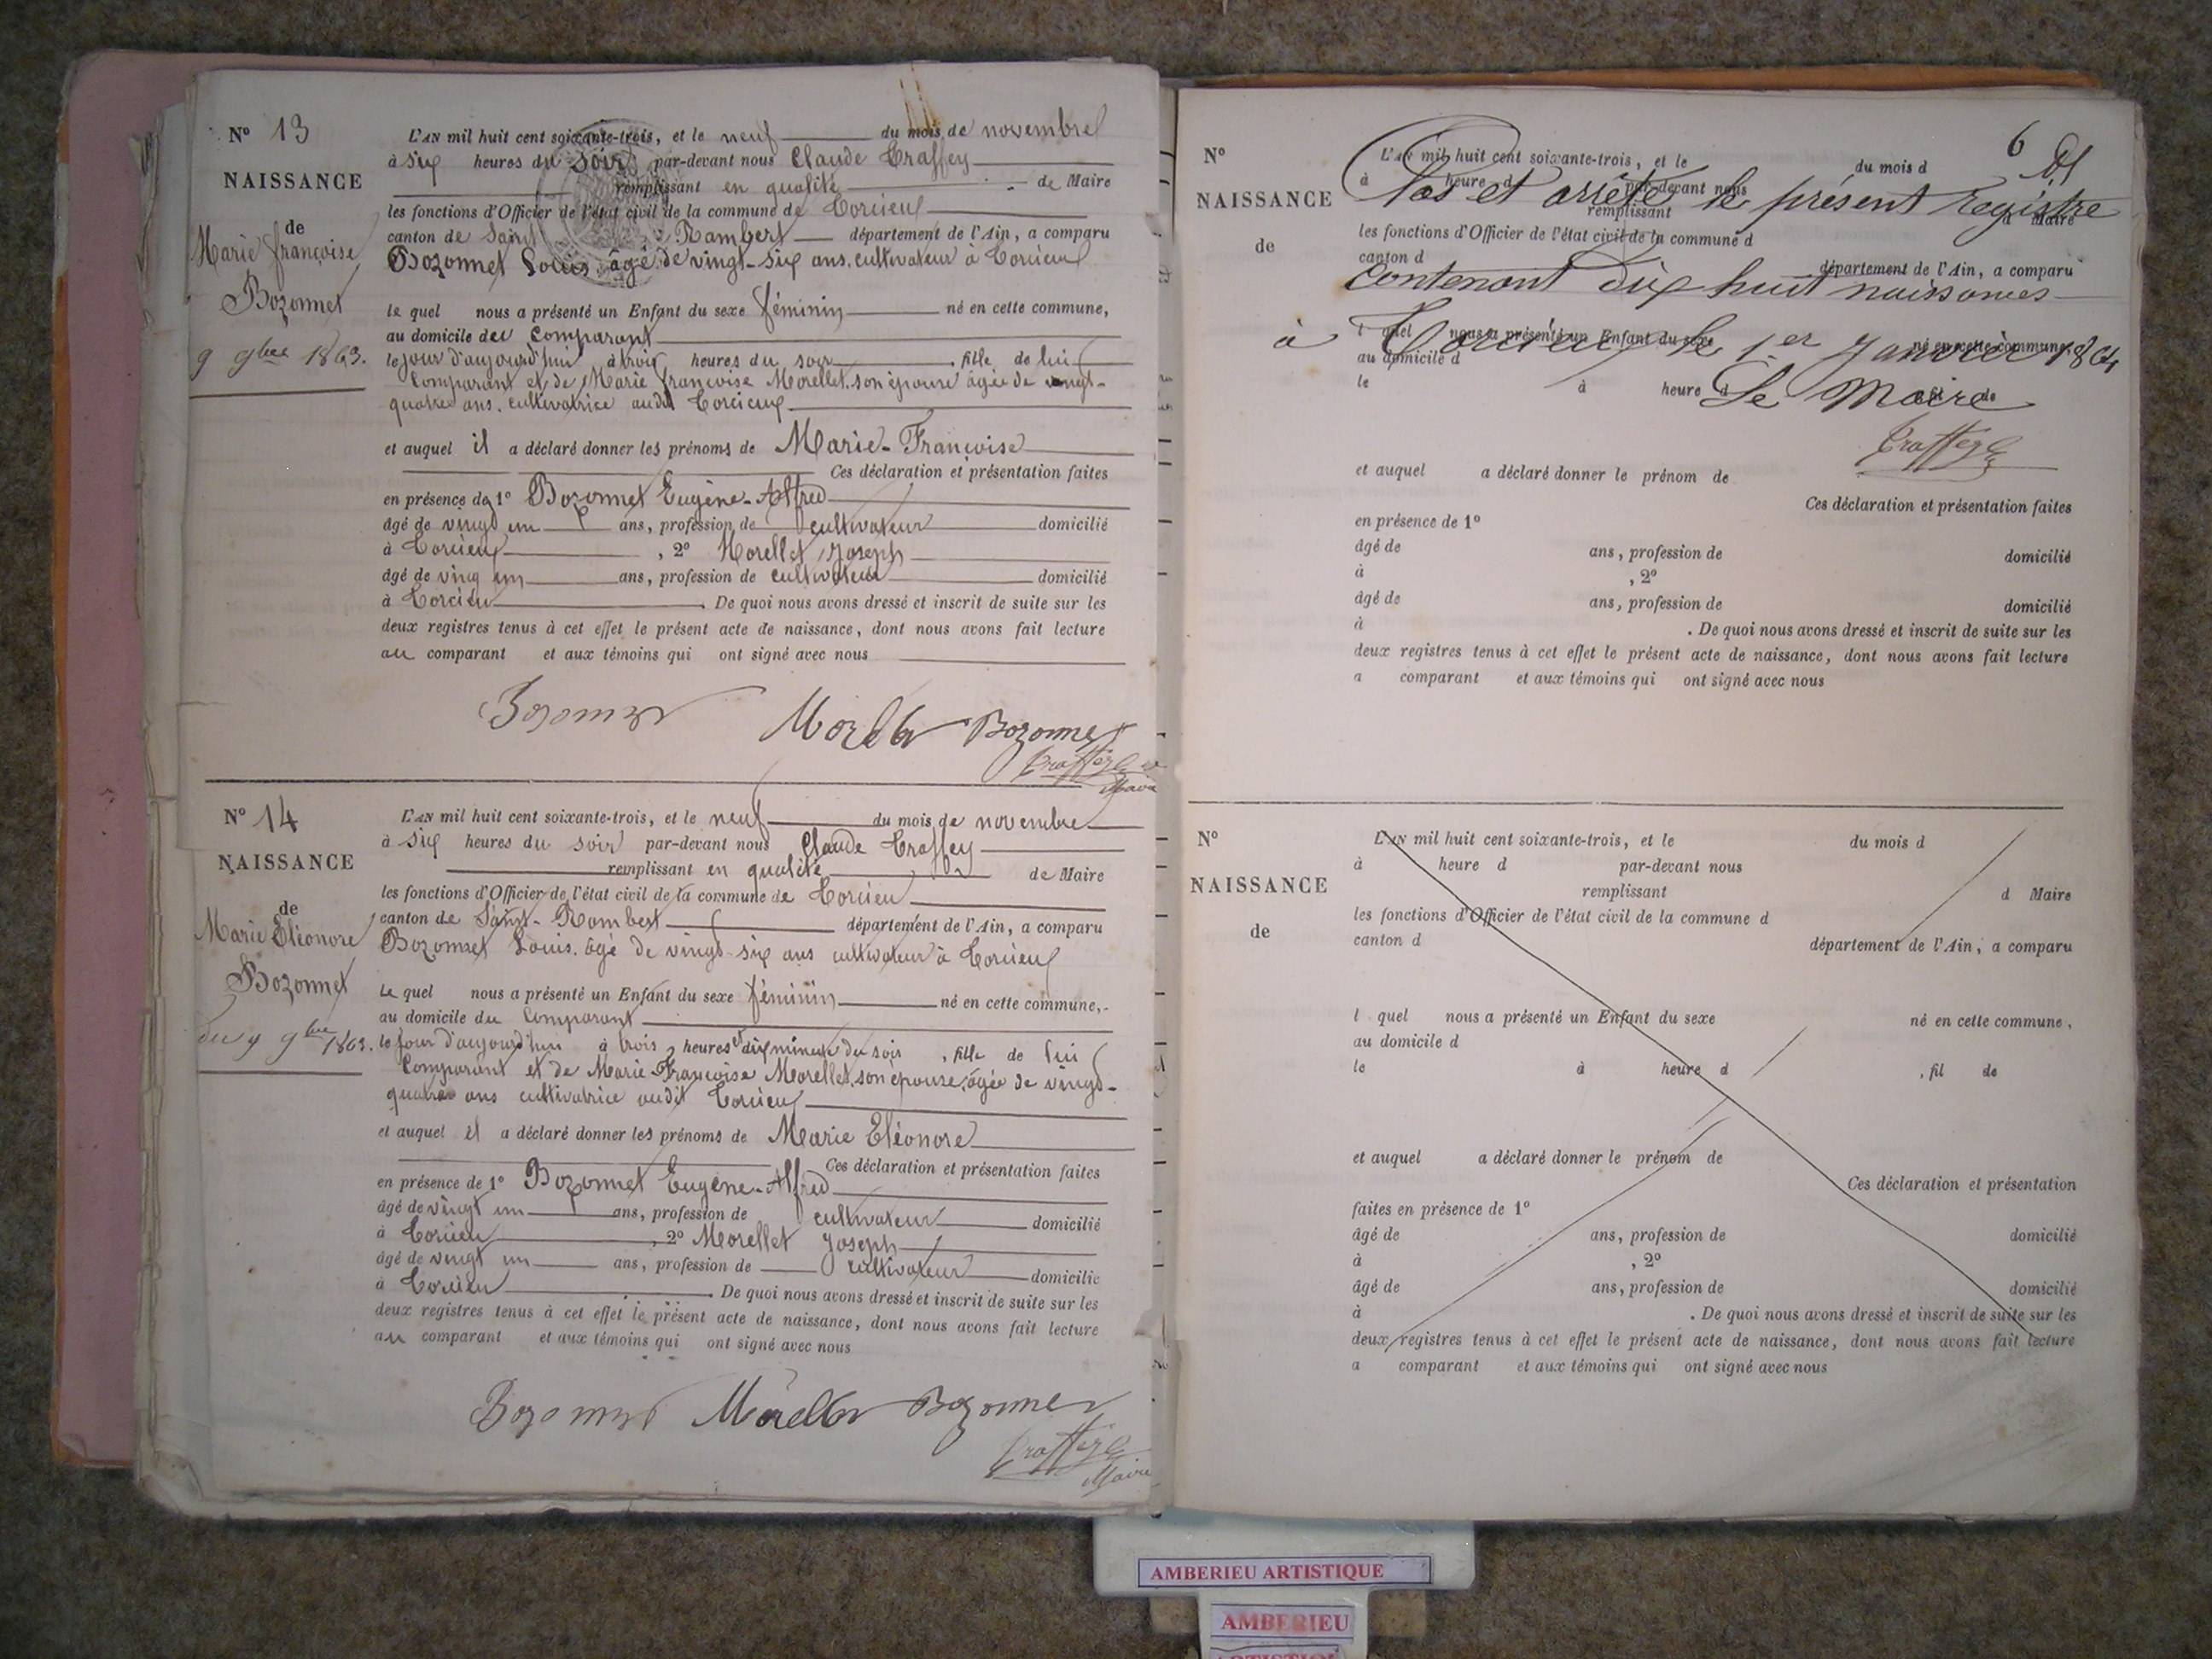 N° 13
NAISSANCE
de
Marie françoise
Bozonnet
9 9bre 1863.
L'AN mil huit cent soixante-trois, et le neuf du mois de novembre
à six heures du soir par-devant nous Claude Traffey
remplissant en qualité de Maire
les fonctions d'Officier de l'état civil de la commune de Torcieu
canton de Saint Rambert département de l'Ain, a comparu
Bozonnet Louis, âgé de vingt-six ans, cultivateur à Torcieu
le quel nous a présenté un Enfant du sexe féminin né en cette commune,
au domicile du Comparant
le jour d'aujourd'hui à trois heures du soir fille de lui
Comparant et de Marie françoise Morellet, son épouse âgée de vingt-
quatre ans, cultivatrice audit Torcieu
et auquel il a déclaré donner les prénoms de Marie-Françoise
Ces déclaration et présentation faites
en présence de 1° Bozonnet Eugène-Alfred
âgé de vingt un ans, profession de cultivateur domicilié
à Torcieu , 2° Morellet Joseph
âgé de ving un ans, profession de cultivateur domicilié
à Torcieu . De quoi nous avons dressé et inscrit de suite sur les
deux registres tenus à cet effet le présent acte de naissance, dont nous avons fait lecture
au comparant et aux témoins qui ont signé avec nous
Bozonnet Morellet Bozonnet
Traffey
Maire
N° 14
NAISSANCE
de
Marie Eléonore
Bozonnet
du 9 9bre 1863.
L'AN mil huit cent soixante-trois, et le neuf du mois de novembre
à six heures du soir par-devant nous Claude Traffey
remplissant en qualité de Maire
les fonctions d'Officier de l'état civil de la commune de Torcieu
canton de Saint-Rambert département de l'Ain, a comparu
Bozonnet Louis, âgé de vingt-six ans cultivateur à Torcieu
Le quel nous a présenté un Enfant du sexe féminin né en cette commune,
au domicile du Comparant
le jour d'aujourd'hui à trois heures et dix minutes du soir , fille de lui
Comparant et de Marie-Françoise Morellet, son épouse, âgée de vingt-
quatre ans cultivatrice audit Torcieu
et auquel il a déclaré donner les prénoms de Marie Eléonore
Ces déclaration et présentation faites
en présence de 1° Bozonnet Eugène-Alfred
âgé de vingt un ans, profession de cultivateur domicilié
à Torcieu , 2° Morellet Joseph
âgé de vingt un ans, profession de cultivateur domicilié
à Torcieu . De quoi nous avons dressé et inscrit de suite sur les
deux registres tenus à cet effet le présent acte de naissance, dont nous avons fait lecture
au comparant et aux témoins qui ont signé avec nous
Bozonnet Morellet Bozonnet
Traffey
Maire
6
N°
NAISSANCE
de
L'AN mil huit cent soixante-trois, et le du mois d
à heure d par-devant nous
Clos et arrêté le présent registre
remplissant d Maire
les fonctions d'Officier de l'état civil de la commune d
canton d département de l'Ain, a comparu
contenant dix huit naissances
l quel nous a présenté un Enfant du sexe né en cette commune,
à Torcieu le 1er Janvier 1864
au domicile d
le à heure d , fil de
Le Maire
Traffey
et auquel a déclaré donner le prénom de
Ces déclaration et présentation faites
en présence de 1°
âgé de ans, profession de domicilié
à , 2°
âgé de ans, profession de domicilié
à . De quoi nous avons dressé et inscrit de suite sur les
deux registres tenus à cet effet le présent acte de naissance, dont nous avons fait lecture
a comparant et aux témoins qui ont signé avec nous
N°
NAISSANCE
de
L'AN mil huit cent soixante-trois, et le du mois d
à heure d par-devant nous
remplissant d Maire
les fonctions d'Officier de l'état civil de la commune d
canton d département de l'Ain, a comparu
l quel nous a présenté un Enfant du sexe né en cette commune,
au domicile d
le à heure d , fil de
et auquel a déclaré donner le prénom de
Ces déclaration et présentation
faites en présence de 1°
âgé de ans, profession de domicilié
à , 2°
âgé de ans, profession de domicilié
à . De quoi nous avons dressé et inscrit de suite sur les
deux registres tenus à cet effet le présent acte de naissance, dont nous avons fait lecture
a comparant et aux témoins qui ont signé avec nous
AMBERIEU ARTISTIQUE
AMBERIEU
ARTISTIQUE